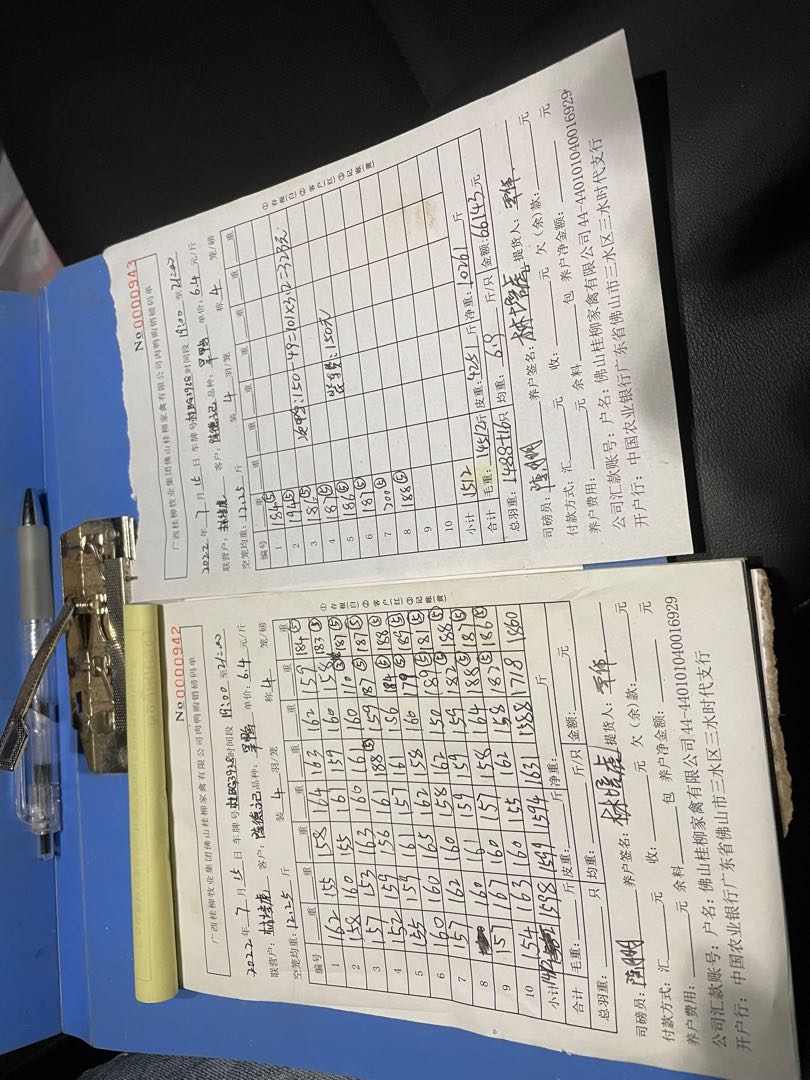 广西桂柳牧业集团佛山桂柳家禽有限公司肉鸭购销磅码单
No 0000942
2022年7月15日 车牌号 时间段19:00至21:00
联营户: 客户: 品种: 单价:6.4元/斤
空笼均重:12.25斤 装4羽/笼 称4笼/磅
编号 重 重 重 重 重 重 重 重
1 162 155 158 164 163 162 159 184⑤
2 158 160 155 161 159 160 158 183⑤
3 157 153 163 160 161 160 187⑤
4 152 159 156 161 188⑤ 159 187⑤ 187⑤
5 155 159 161 157 161 156 184⑤ 188⑤
6 160 160 165 162 158 160 179 189⑤
7 157 162 160 158 162 150 189⑤
8 160 161 159 159 159 188⑤
9 157 167 160 157 158 164 188⑤ 187⑤
10 154 163 160 155 162 158 183⑤ 186⑤
小计 1598 1599 1594 1631 1588 1718 1860
合计 毛重: 斤 皮重: 斤 净重: 斤
总羽重: 只 均重: 斤/只 金额: 元
司磅员: 养户签名:林培虎 提货人:
付款方式:汇 元 收: 元 欠(余)款: 元
养户费用: 元 余料 包 养户净金额: 元
公司汇款账号:户名:佛山桂柳家禽有限公司44-440101040016929
开户行:中国农业银行广东省佛山市三水区三水时代支行
①存根白 ②客户红 ③记账黄
广西桂柳牧业集团佛山桂柳家禽有限公司肉鸭购销磅码单
No 0000943
2022年7月15日 车牌号 时间段19:00至21:00
联营户: 客户: 品种: 单价:6.4元/斤
空笼均重:12.25斤 装4羽/笼 称4笼/磅
编号 重 重 重 重 重 重 重 重
1 184⑤
2 194⑤ 次鸭:150-49=101×3.2=323元
3 186⑤
4 187⑤ 装车费:150元
5 186⑤
6 187⑤
7 200⑤
8 188⑤
9
10
小计 1512
合计 毛重:14512斤 皮重:4251斤 净重:10261斤
总羽重:1488+16只 均重:6.8斤/只 金额:66143元
司磅员: 养户签名:林培虎 提货人:
付款方式:汇 元 收: 元 欠(余)款: 元
养户费用: 元 余料 包 养户净金额: 元
公司汇款账号:户名:佛山桂柳家禽有限公司44-440101040016929
开户行:中国农业银行广东省佛山市三水区三水时代支行
①存根白 ②客户红 ③记账黄